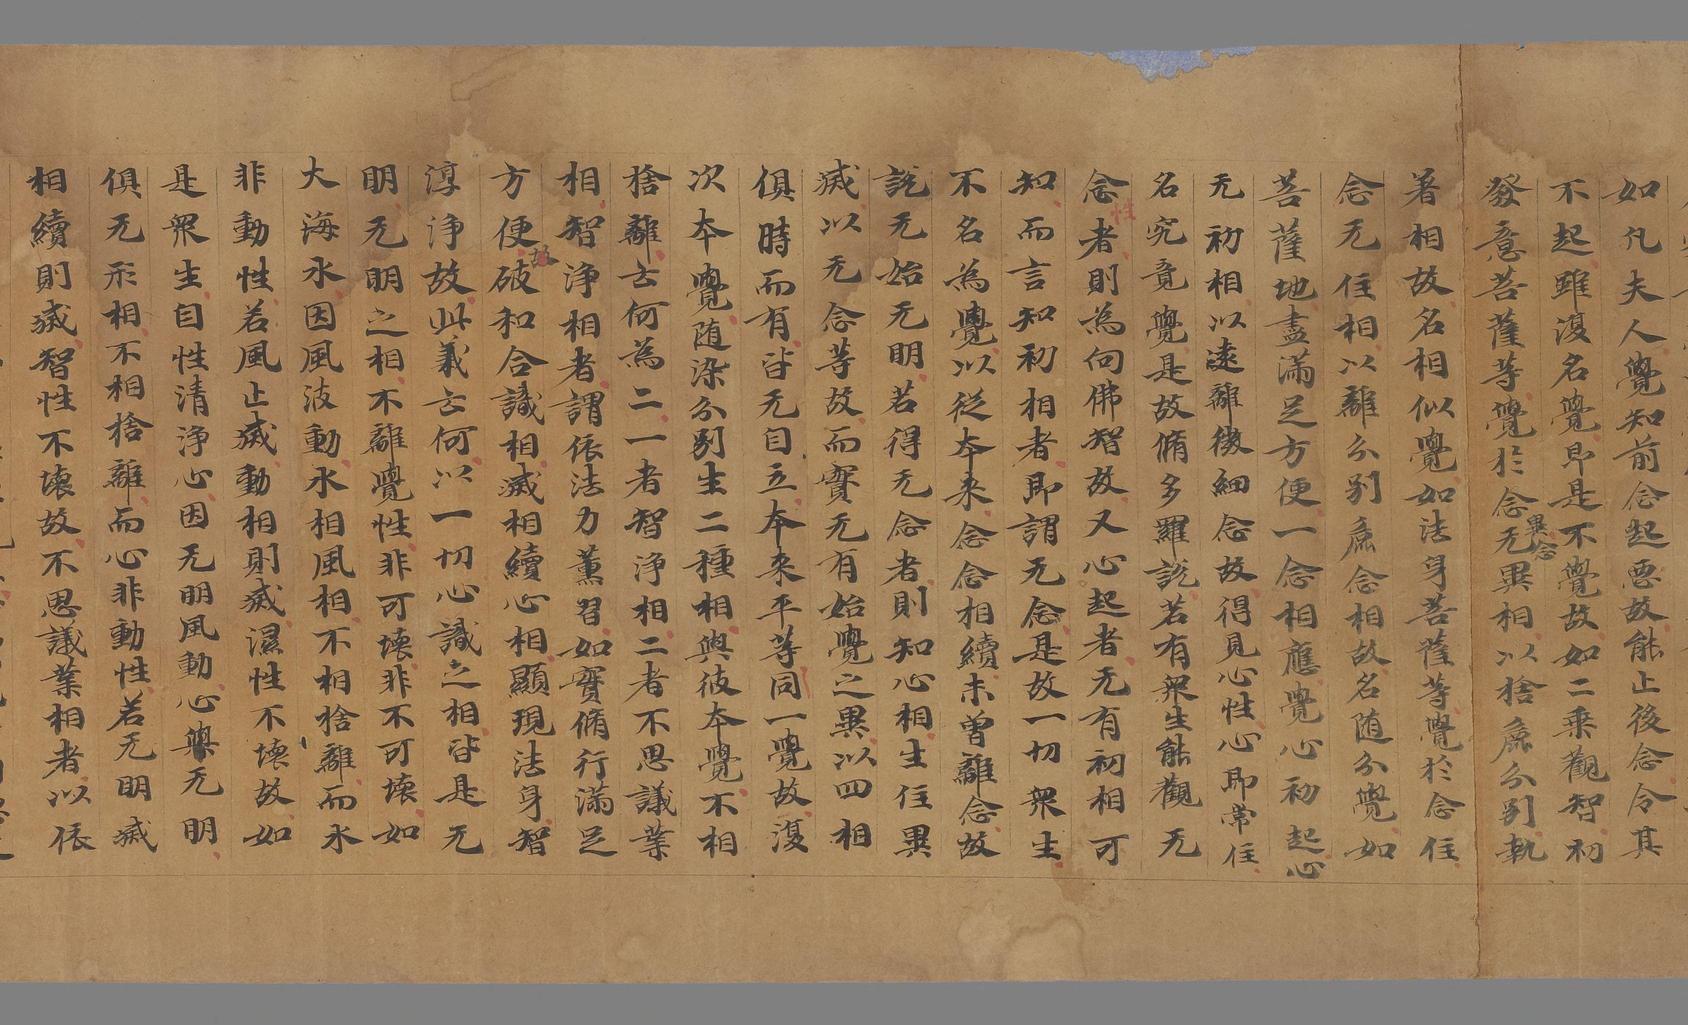 如凡夫人覺知前念起惡故能止後念令其
不起雖復名覺即是不覺故如二乘觀智初
發意菩薩等覺於念異念无異相以捨麁分別執
著相故名相似覺如法身菩薩等覺於念住
念无住相以離分別麁念相故名随分覺如
菩薩地盡滿足方便一念相應覺心初起心
无初相以遠離微細念故得見心性心即常住
名究竟覺是故脩多羅說若有衆生能觀无
念性者則為向佛智故又心起者无有初相可
知而言知初相者即謂无念是故一切衆生
不名為覺以從本来念念相續未曾離念故
說无始无明若得无念者則知心相生住異
滅以无念等故而實无有始覺之異以四相
俱時而有皆无自立本来平等同一覺故復
次本覺随染分別生二種相與彼本覺不相
捨離云何為二一者智淨相二者不思議業
相智淨相者謂依法力薰習如實脩行滿足
方便故破和合識相滅相續心相顯現法身智
淳淨故此義云何以一切心識之相皆是无
明无明之相不離覺性非可壞非不可壞如
大海水因風波動水相風相不相捨離而水
非動性若風止滅動相則滅濕性不壞故如
是衆生自性清淨心因无明風動心與无明
俱无形相不相捨離而心非動性若无明滅
相續則滅智性不壞故不思議業相者以依